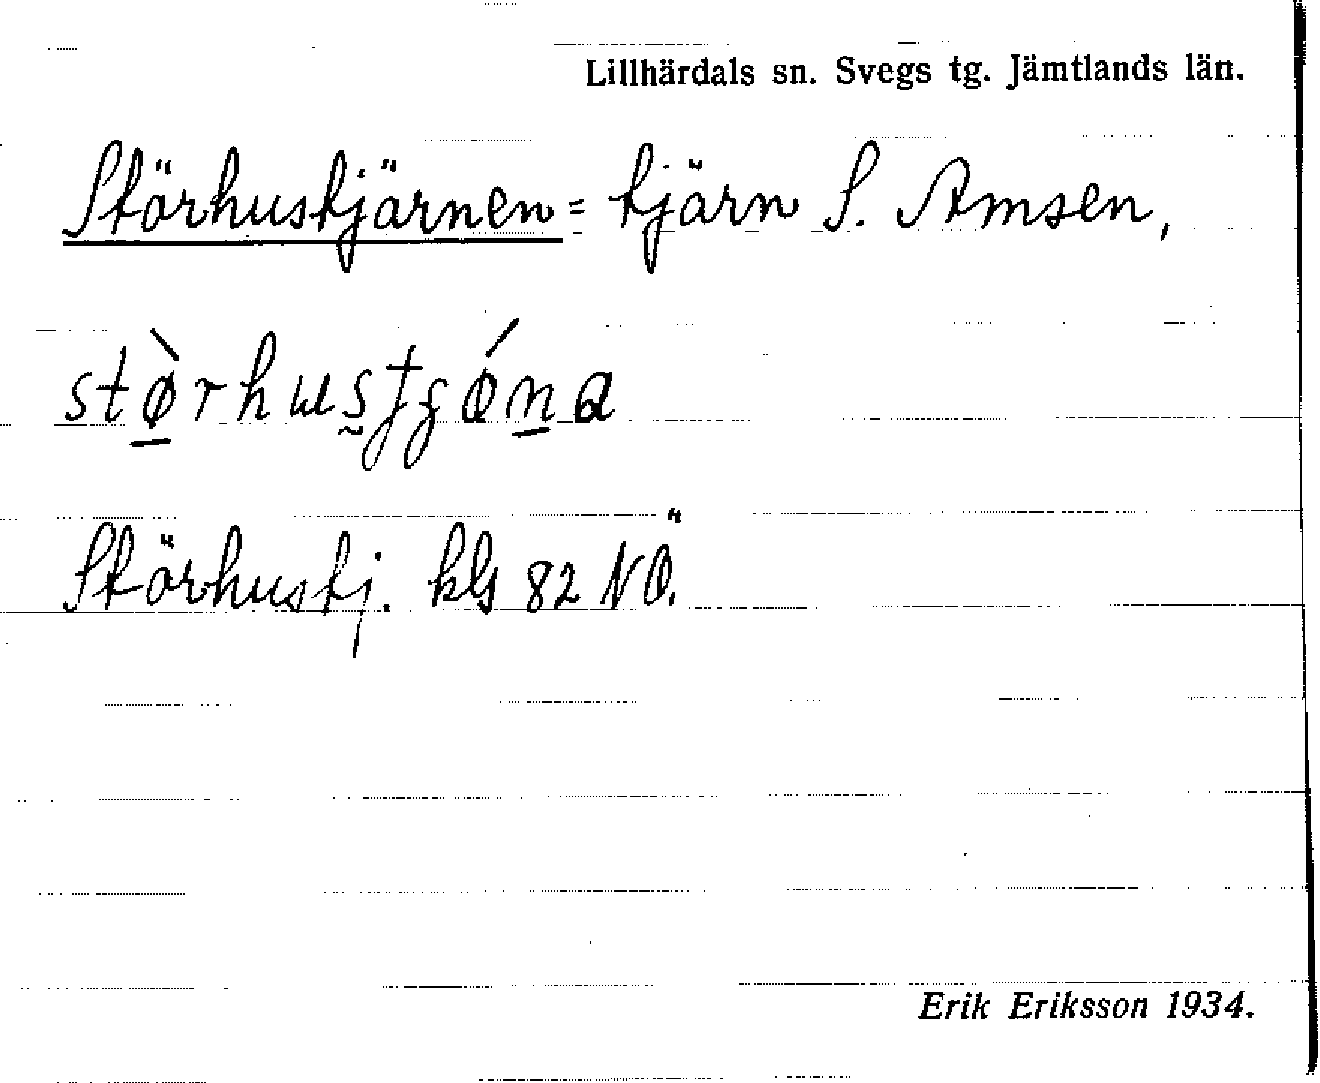 Lillhärdals sn. Svegs tg. Jämtlands län.
Störhustjärnen = tjärn S. Amsen,
Störhustj. kbl 82 NÖ.
Erik Eriksson 1934.